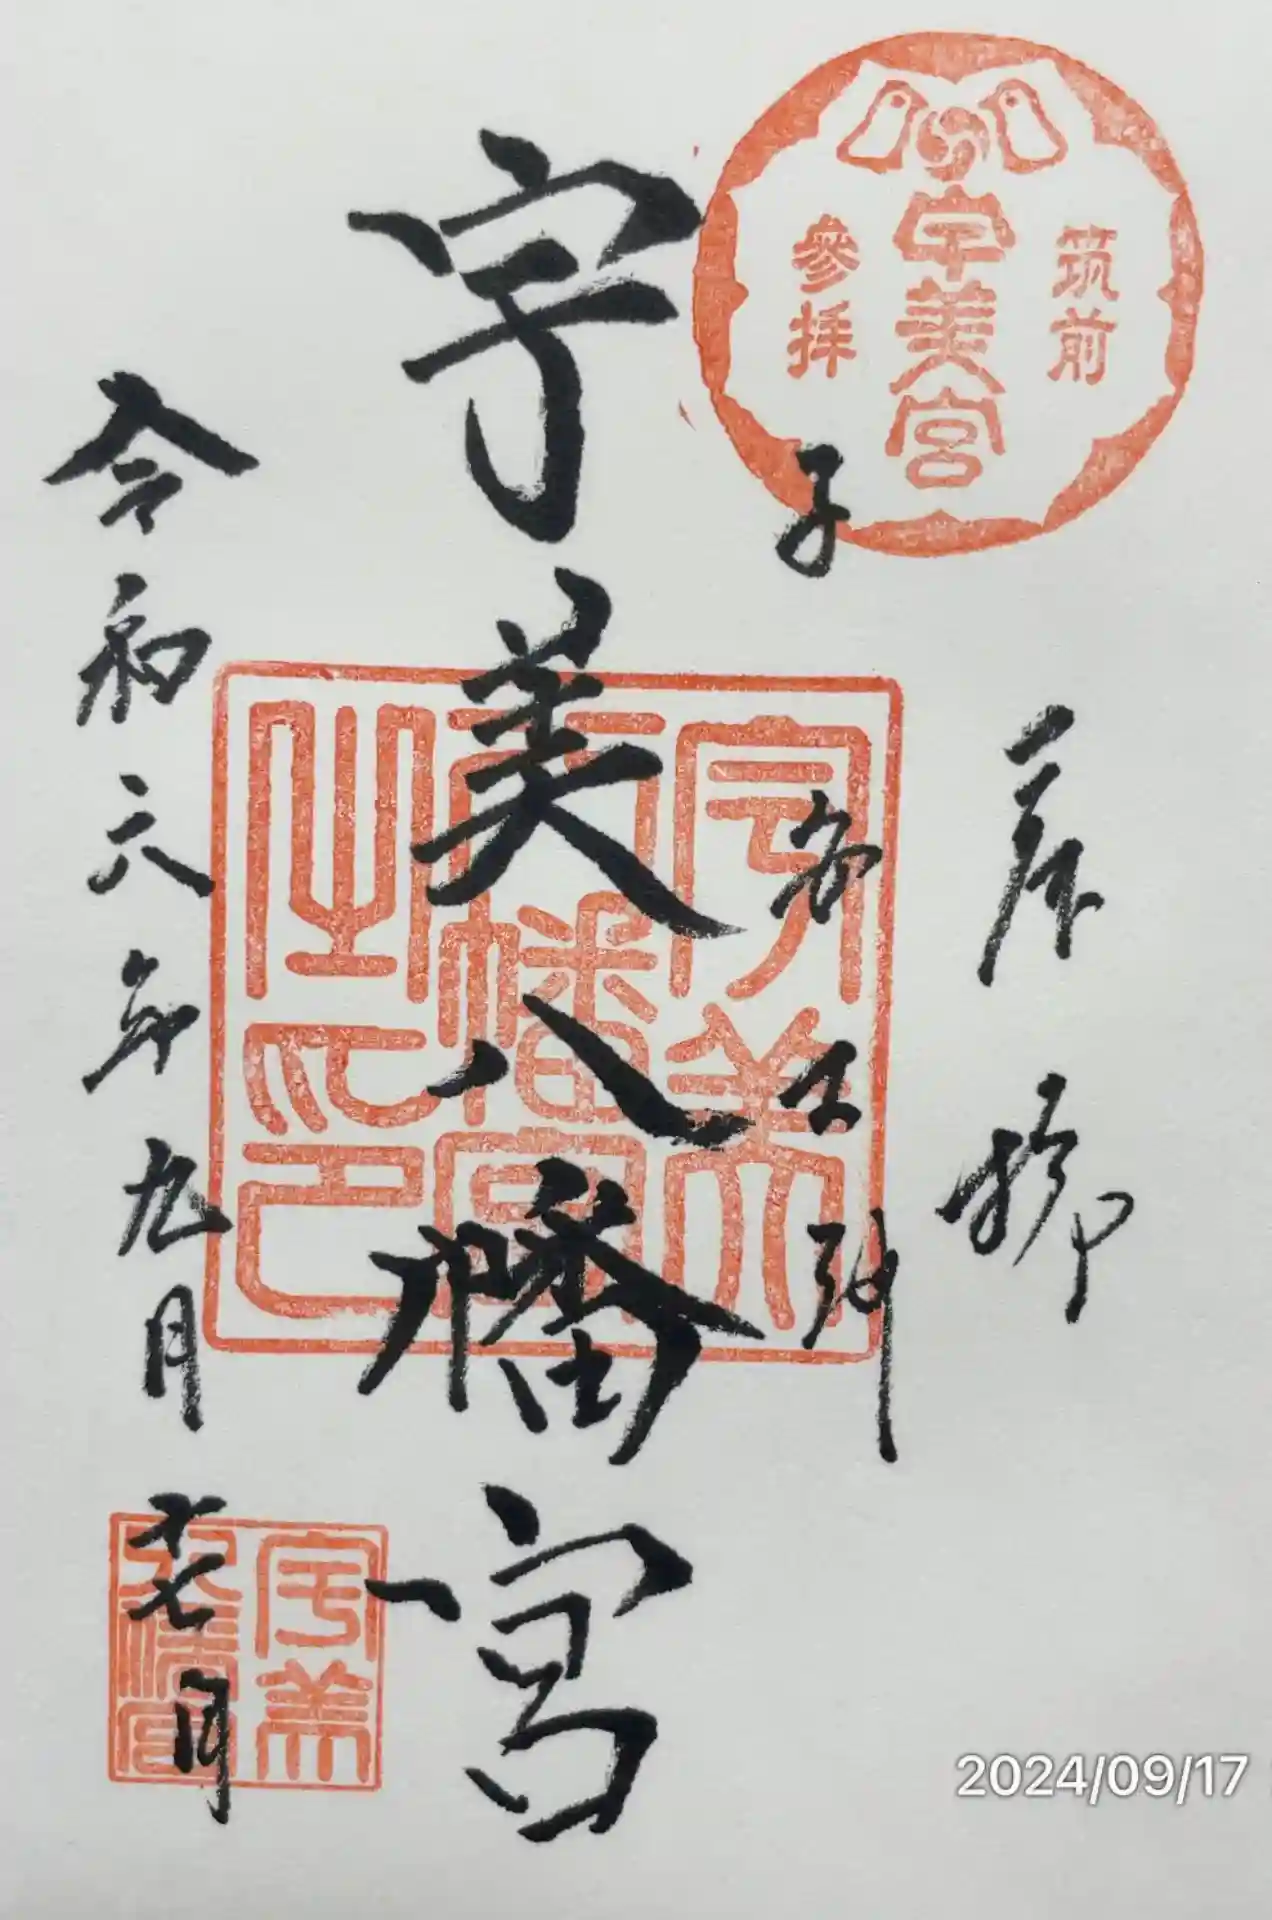 筑前
宇美宮
參拝
産
子安大神
宇美八幡宮
宇美
八幡宮
之印
令和六年九月十七日
宇美
八幡宮
2024/09/17